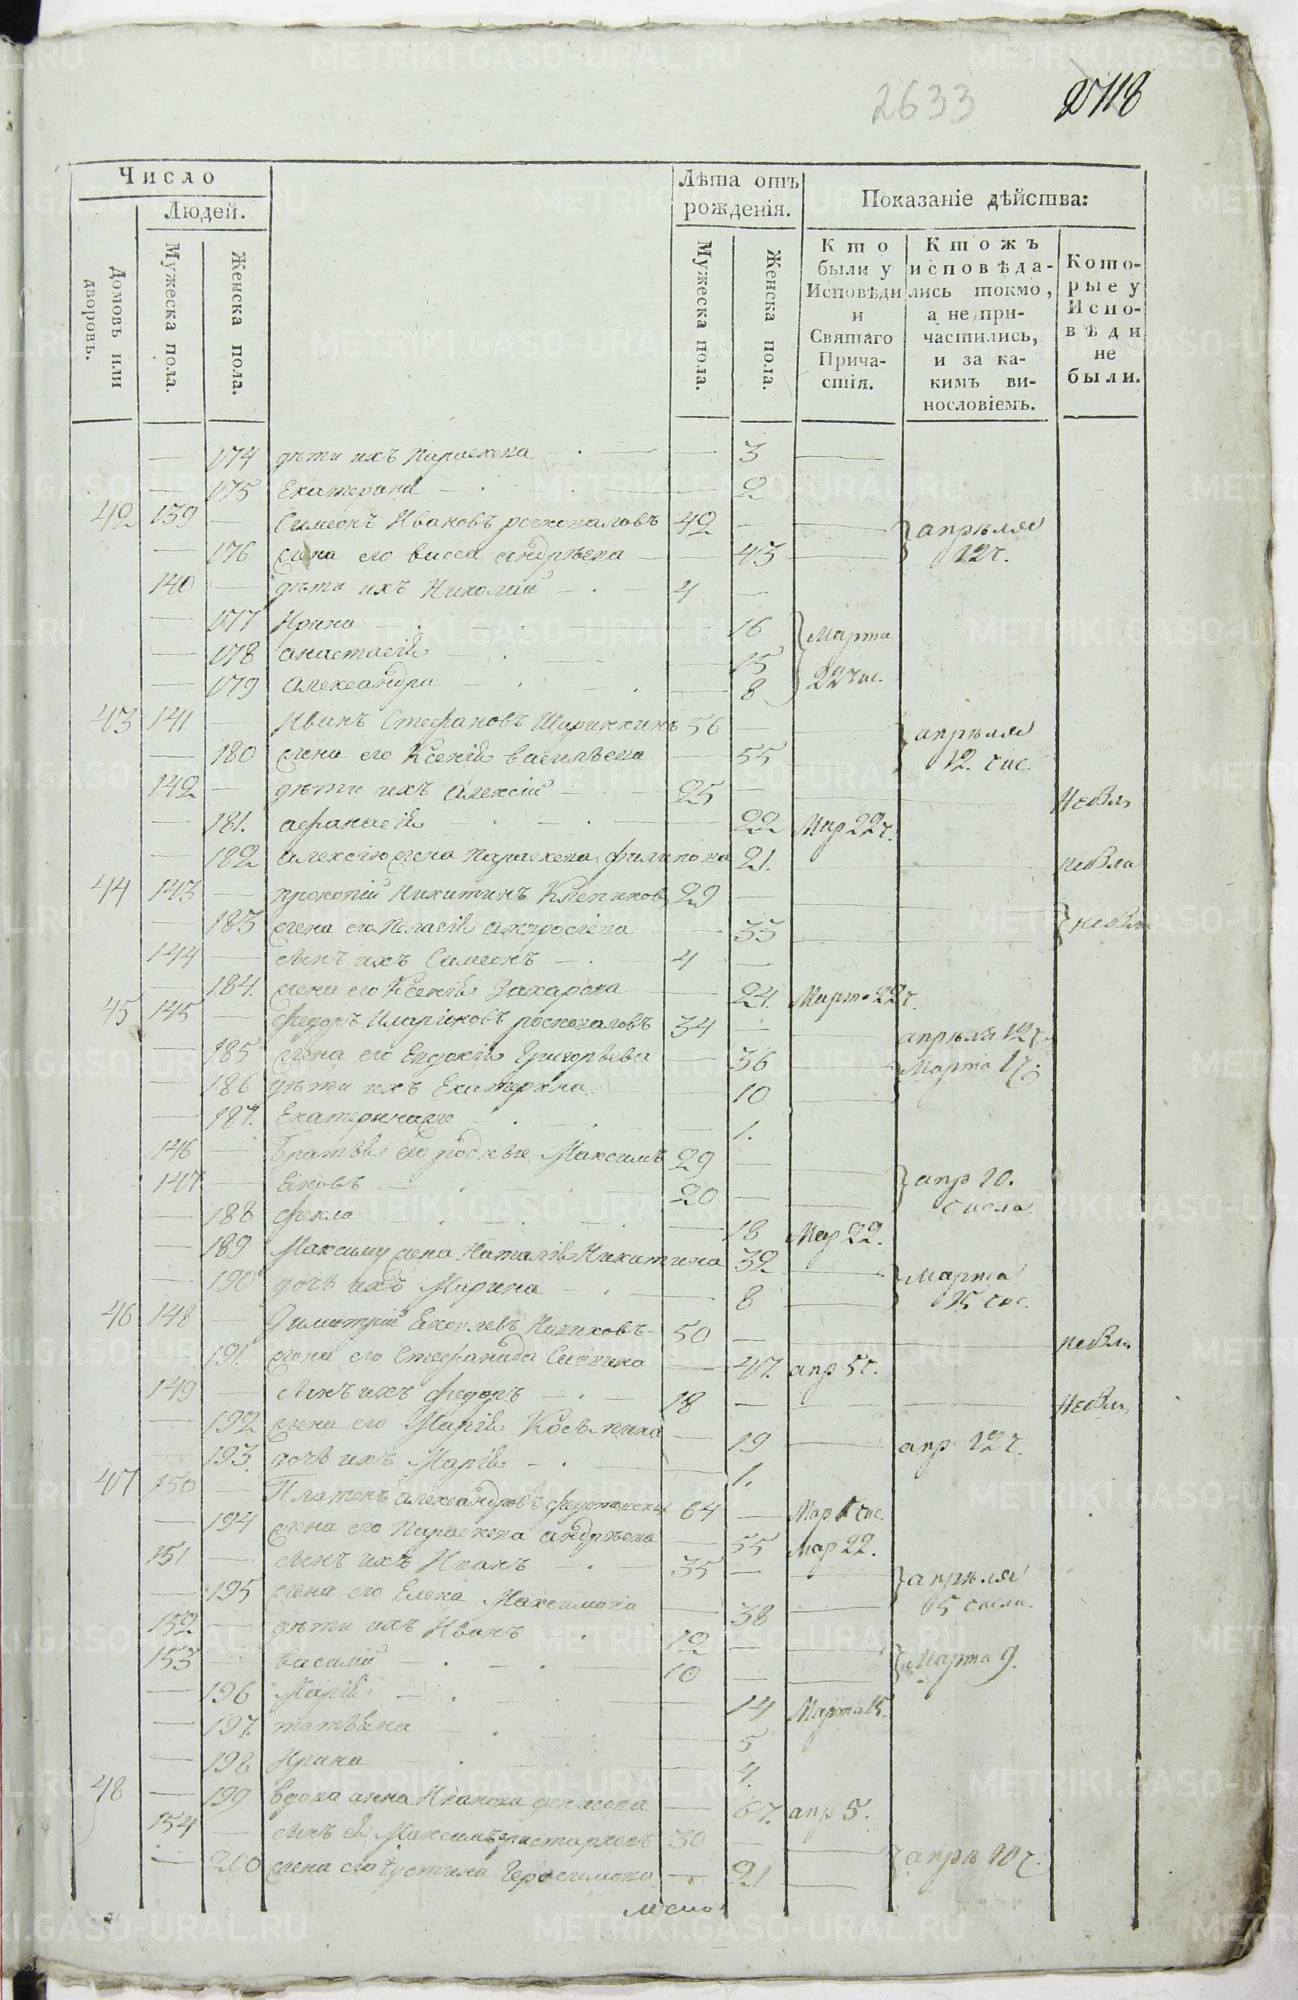 2633 2718
Число
Людей.
Домовъ или дворовъ.
Мужеска пола.
Женска пола.
Лѣта отъ рожденія.
Мужеска пола.
Женска пола.
Показаніе дѣйства:
Кто были у Исповѣди и Святаго Причастія.
Ктожъ исповѣдались токмо, а не причастились, и за какимъ винословіемъ.
Которые у Исповѣди не были.
174 дѣти ихъ Параскева 3
175 Екатерина 2
42 139 Симеонъ Ивановъ 42 апрѣля
176 жена его васса андрѣева 43 12 ч.
140 дѣти ихъ Николай 4
177 Ирина 16 Марта
178 анастасія 15 22 чис.
179 Александра 8
43 141 Иванъ Стефановъ 56 апрѣля
180 жена его Ксенія васильева 55 12. чис.
142 дѣти ихъ Алексій 25 небыл
181. афанасія 22 Мар 22 ч.
182 алексію жена параскева филипова 21. небыла
44 143 прокопій Никитинъ Клепиковъ 29
183 жена его Пелагія амвросіева 33 небыли
144 сынъ ихъ Симеонъ 4
184. жена его Ксенія Захарова 24. Марта 22 ч.
45 145 Федоръ Иларіоновъ 34 апрѣля 12 ч.
185 жена его Евдокія Григорьева 36 Марта 1 ч.
186 дѣти ихъ Екатерина 10
187. Екатеринаже 1.
146 Братья его родные Максимъ 29 апр 10.
147 Яковъ 20 числа
188 фекла 18 Мар 22.
189 Максиму жена Наталія Никитина 32 Марта
190 дочь ихъ Марина 8 15 чис.
46 148 Димитрій Яковлевъ 50 небыл
191. жена его Стефанида 47. апр 5 ч.
149 сынъ ихъ федоръ 18 небыл
192 жена его Марія Косьмина 19 апр 12 ч.
193. дочь ихъ Марія 1.
47 150 Платонъ александровъ 64 Мар 1 чис.
194 жена его Параскева андрѣева 55 Мар 22.
151 сынъ ихъ Иванъ 35 апрѣля
195 жена его Елена Максимова 38 5 числа.
152 дѣти ихъ Иванъ 12 Марта 9.
153 василій 10
196 Марія 14 Марта 15.
197. татьяна 5
198 Ирина 4.
48 199 вдова анна Иванова 67. апр 5.
154 сынъ ея Максимъ 30 апрѣ 10 ч.
200 жена его Устина Герасимова 21